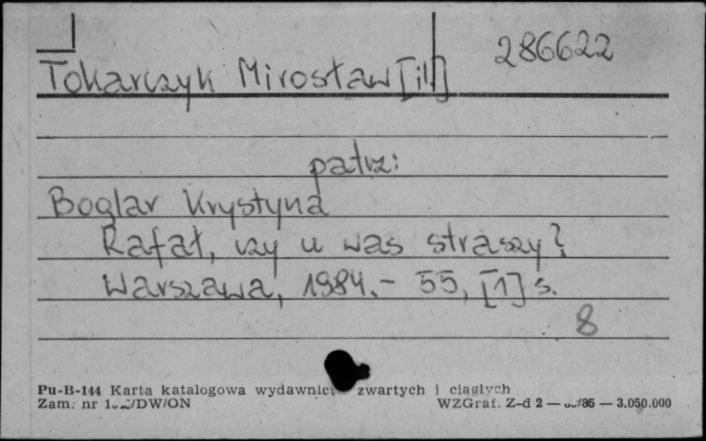 286622
Tokarczyk Mirosław [il.]
patrz:
Boglar Krystyna
Rafał, czy u was straszy?
Warszawa, 1984.- 55, [1] s.
8
Pu-B-144 Karta katalogowa wydawnict zwartych i ciągłych
Zam. nr /DW/ON WZGraf. Z-d 2 — /86 — 3.050.000